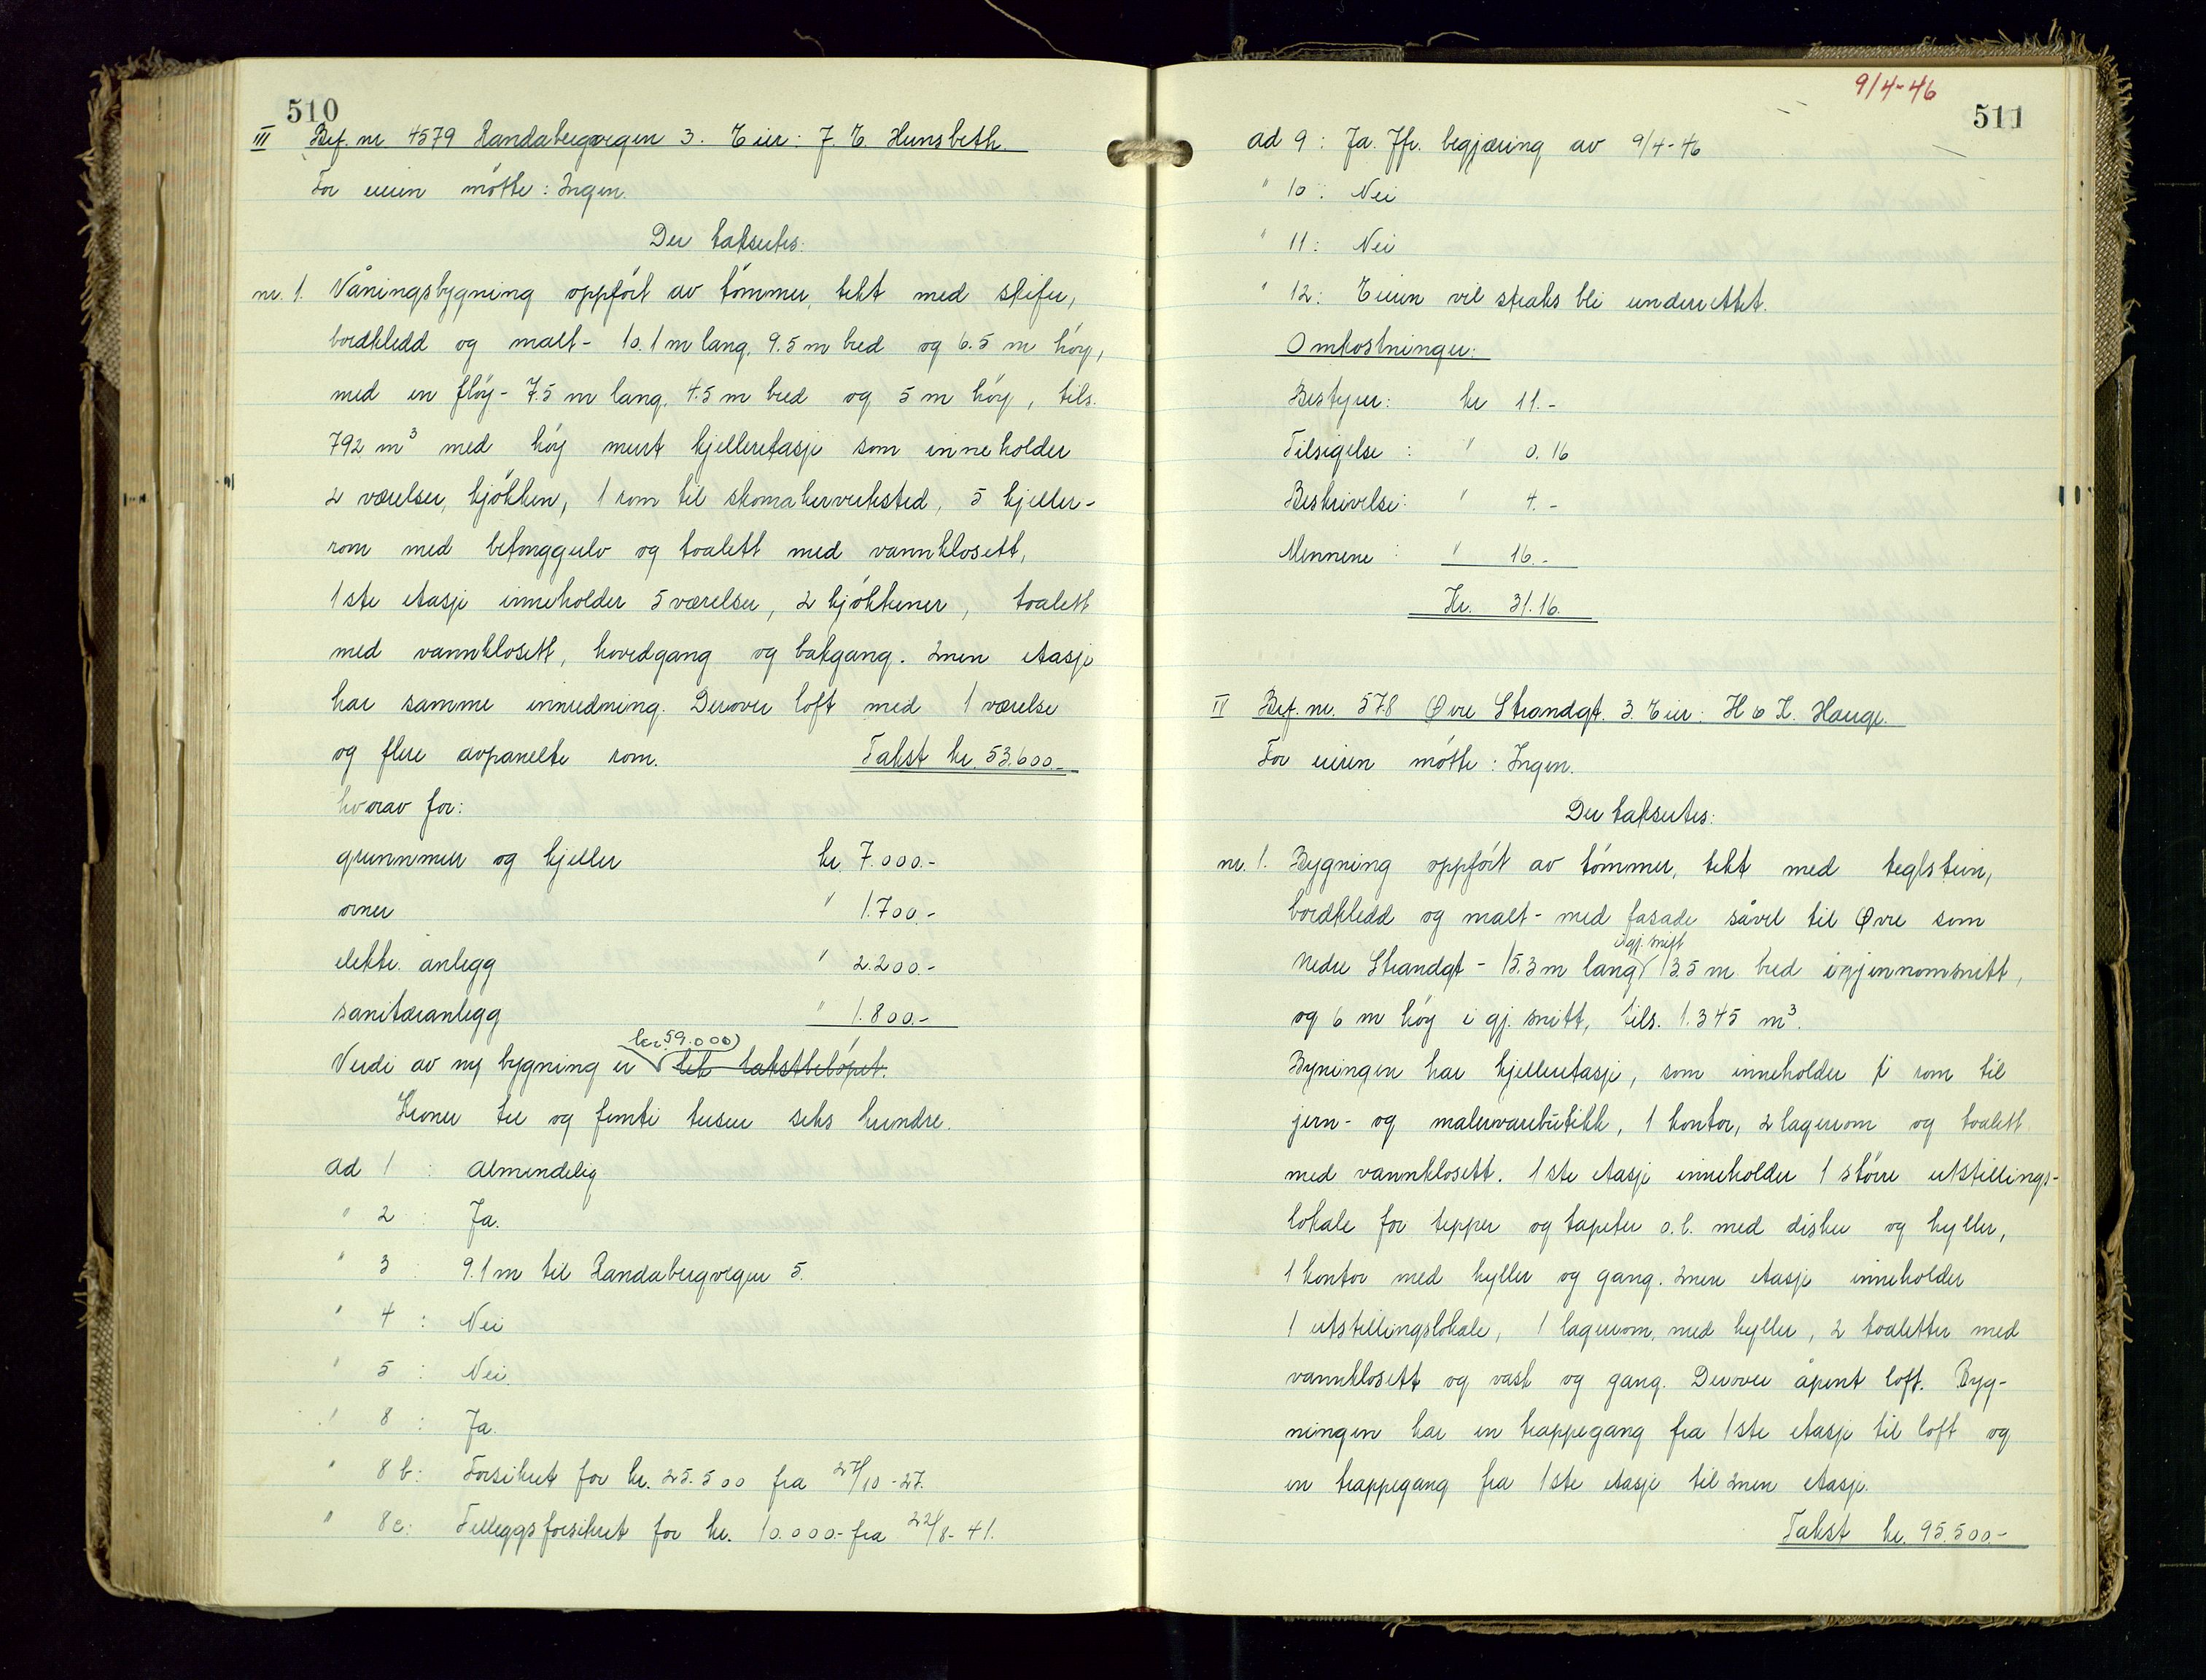 510
III Bef. nr 4579 Randabergvegen 3. Eier: J. E. Hunsbeth
For eieren møtte: Ingen.
Der takseres:
nr. 1. Våningsbygning oppført av tømmer, tekt med skifer,
bordkledd og malt - 10.1 m lang, 9.5 m bred og 6.5 m høy,
med en fløy - 7.5 m lang, 4.5 m bred og 5 m høy, tils.
792 m³ med høy murt kjelleretasje som inneholder
2 værelser, kjøkken, 1 rom til skomakerverksted, 5 kjeller-
rom med betonggulv og toalett med vannklosett,
1ste etasje inneholder 5 værelser, 2 kjøkkener, toalett
med vannklosett, hovedgang og bakgang. 2nen etasje
har samme innredning. Derover loft med 1 værelse
og flere avpanelte rom. Takst kr. 53.600.-
hvorav for:
grunnmur og kjeller kr. 7.000.-
ovner " 1.700.-
elektr. anlegg " 2.200.-
sanitæranlegg " 1.800.-
kr. 59.000)
Verdi av ny bygning er lik takstbeløpet.
Kroner tre og femti tusen seks hundre.
ad 1 : Almindelig
" 2 : Ja.
" 3 : 9.1 m til Randabergvegen 5.
" 4 : Nei
" 5 : Nei.
" 8 : Ja.
" 8 b: Forsikret for kr. 25.500 fra 27/10 - 27.
" 8 c: Tilleggsforsikret for kr. 10.000.- fra 22/8 - 41.
9/4-46
511
ad 9 : Ja. Jfr. begjæring av 9/4-46
" 10 : Nei
" 11 : Nei
" 12 : Eieren vil straks bli underrettet.
Omkostninger:
Bestyrer: kr 11.-
Tilsigelse : " 0.16
Beskrivelse: " 4.-
Mennene : " 16.-
Kr. 31.16
IV Bef. nr. 578 Øvre Strandgt. 3. Eier: H & K. Hauge.
For eieren møtte: Ingen.
Der takseres:
nr. 1. Bygning oppført av tømmer, tekt med teglstein,
bordkledd og malt - med fasade såvel til Øvre som
i gj. snitt
Nedre Strandgt - 15.3 m lang 13.5 m bred i gjennomsnitt,
og 6 m høy i gj. snitt, tils. 1.345 m³.
Byningen har kjelleretasje, som inneholder 1 rom til
jern- og malervarebutikk, 1 kontor, 2 lagerrom og toalett
med vannklosett. 1ste etasje inneholder 1 større utstillings-
lokale for tepper og tapeter o.l. med disker og hyller,
1 kontor med hyller og gang. 2nen etasje inneholder
1 utstillingslokale, 1 lagerrom, med hyller, 2 toaletter med
vannklosett og vask og gang. Derover åpent loft. Byg-
ningen har en trappegang fra 1ste etasje til loft og
en trappegang fra 1ste etasje til 2nen etasje.
Takst kr. 95.500.-